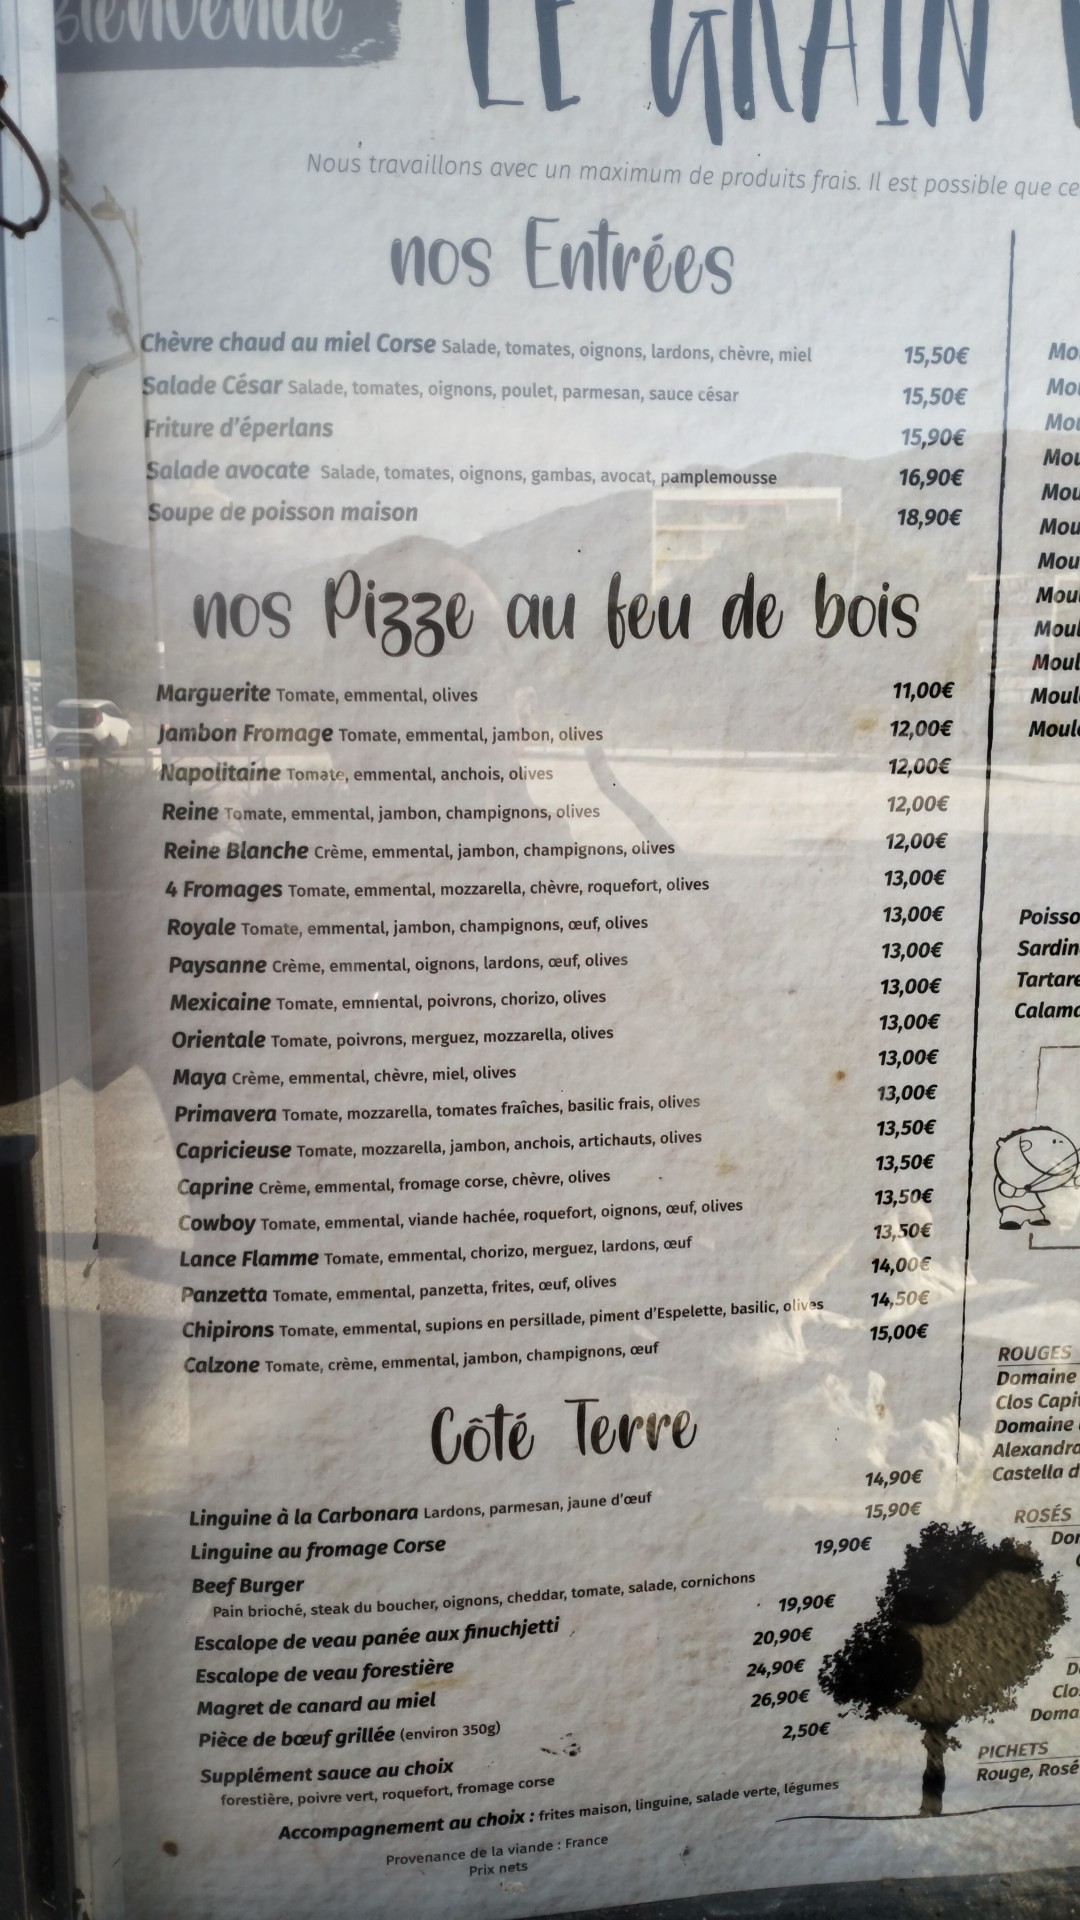 Bienvenue
LE GRAIN
Nous travaillons avec un maximum de produits frais. Il est possible que ce
nos Entrées
Chèvre chaud au miel Corse Salade, tomates, oignons, lardons, chèvre, miel 15,50€
Salade César Salade, tomates, oignons, poulet, parmesan, sauce césar 15,50€
Friture d'éperlans 15,90€
Salade avocate Salade, tomates, oignons, gambas, avocat, pamplemousse 16,90€
Soupe de poisson maison 18,90€
nos Pizze au feu de bois
Marguerite Tomate, emmental, olives 11,00€
Jambon Fromage Tomate, emmental, jambon, olives 12,00€
Napolitaine Tomate, emmental, anchois, olives 12,00€
Reine Tomate, emmental, jambon, champignons, olives 12,00€
Reine Blanche Crème, emmental, jambon, champignons, olives 12,00€
4 Fromages Tomate, emmental, mozzarella, chèvre, roquefort, olives 13,00€
Royale Tomate, emmental, jambon, champignons, œuf, olives 13,00€
Paysanne Crème, emmental, oignons, lardons, œuf, olives 13,00€
Mexicaine Tomate, emmental, poivrons, chorizo, olives 13,00€
Orientale Tomate, poivrons, merguez, mozzarella, olives 13,00€
Maya Crème, emmental, chèvre, miel, olives 13,00€
Primavera Tomate, mozzarella, tomates fraîches, basilic frais, olives 13,00€
Capricieuse Tomate, mozzarella, jambon, anchois, artichauts, olives 13,50€
Caprine Crème, emmental, fromage corse, chèvre, olives 13,50€
Cowboy Tomate, emmental, viande hachée, roquefort, oignons, œuf, olives 13,50€
Lance Flamme Tomate, emmental, chorizo, merguez, lardons, œuf 13,50€
Panzetta Tomate, emmental, panzetta, frites, œuf, olives 14,00€
Chipirons Tomate, emmental, supions en persillade, piment d'Espelette, basilic, olives 14,50€
Calzone Tomate, crème, emmental, jambon, champignons, œuf 15,00€
Côté Terre
Linguine à la Carbonara Lardons, parmesan, jaune d'œuf 14,90€
Linguine au fromage Corse 15,90€
Beef Burger 19,90€
Pain brioché, steak du boucher, oignons, cheddar, tomate, salade, cornichons
Escalope de veau panée aux finuchjetti 19,90€
Escalope de veau forestière 20,90€
Magret de canard au miel 24,90€
Pièce de bœuf grillée (environ 350g) 26,90€
Supplément sauce au choix 2,50€
forestière, poivre vert, roquefort, fromage corse
Accompagnement au choix : frites maison, linguine, salade verte, légumes
Provenance de la viande : France
Prix nets
Mo
Mou
Mou
Mou
Mou
Mou
Mou
Moul
Moul
Moul
Moule
Moule
Poisso
Sardin
Tartare
Calama
ROUGES
Domaine
Clos Capit
Domaine
Alexandra
Castella d
ROSÉS
Dom
D
Clo
Doma
PICHETS
Rouge, Rosé